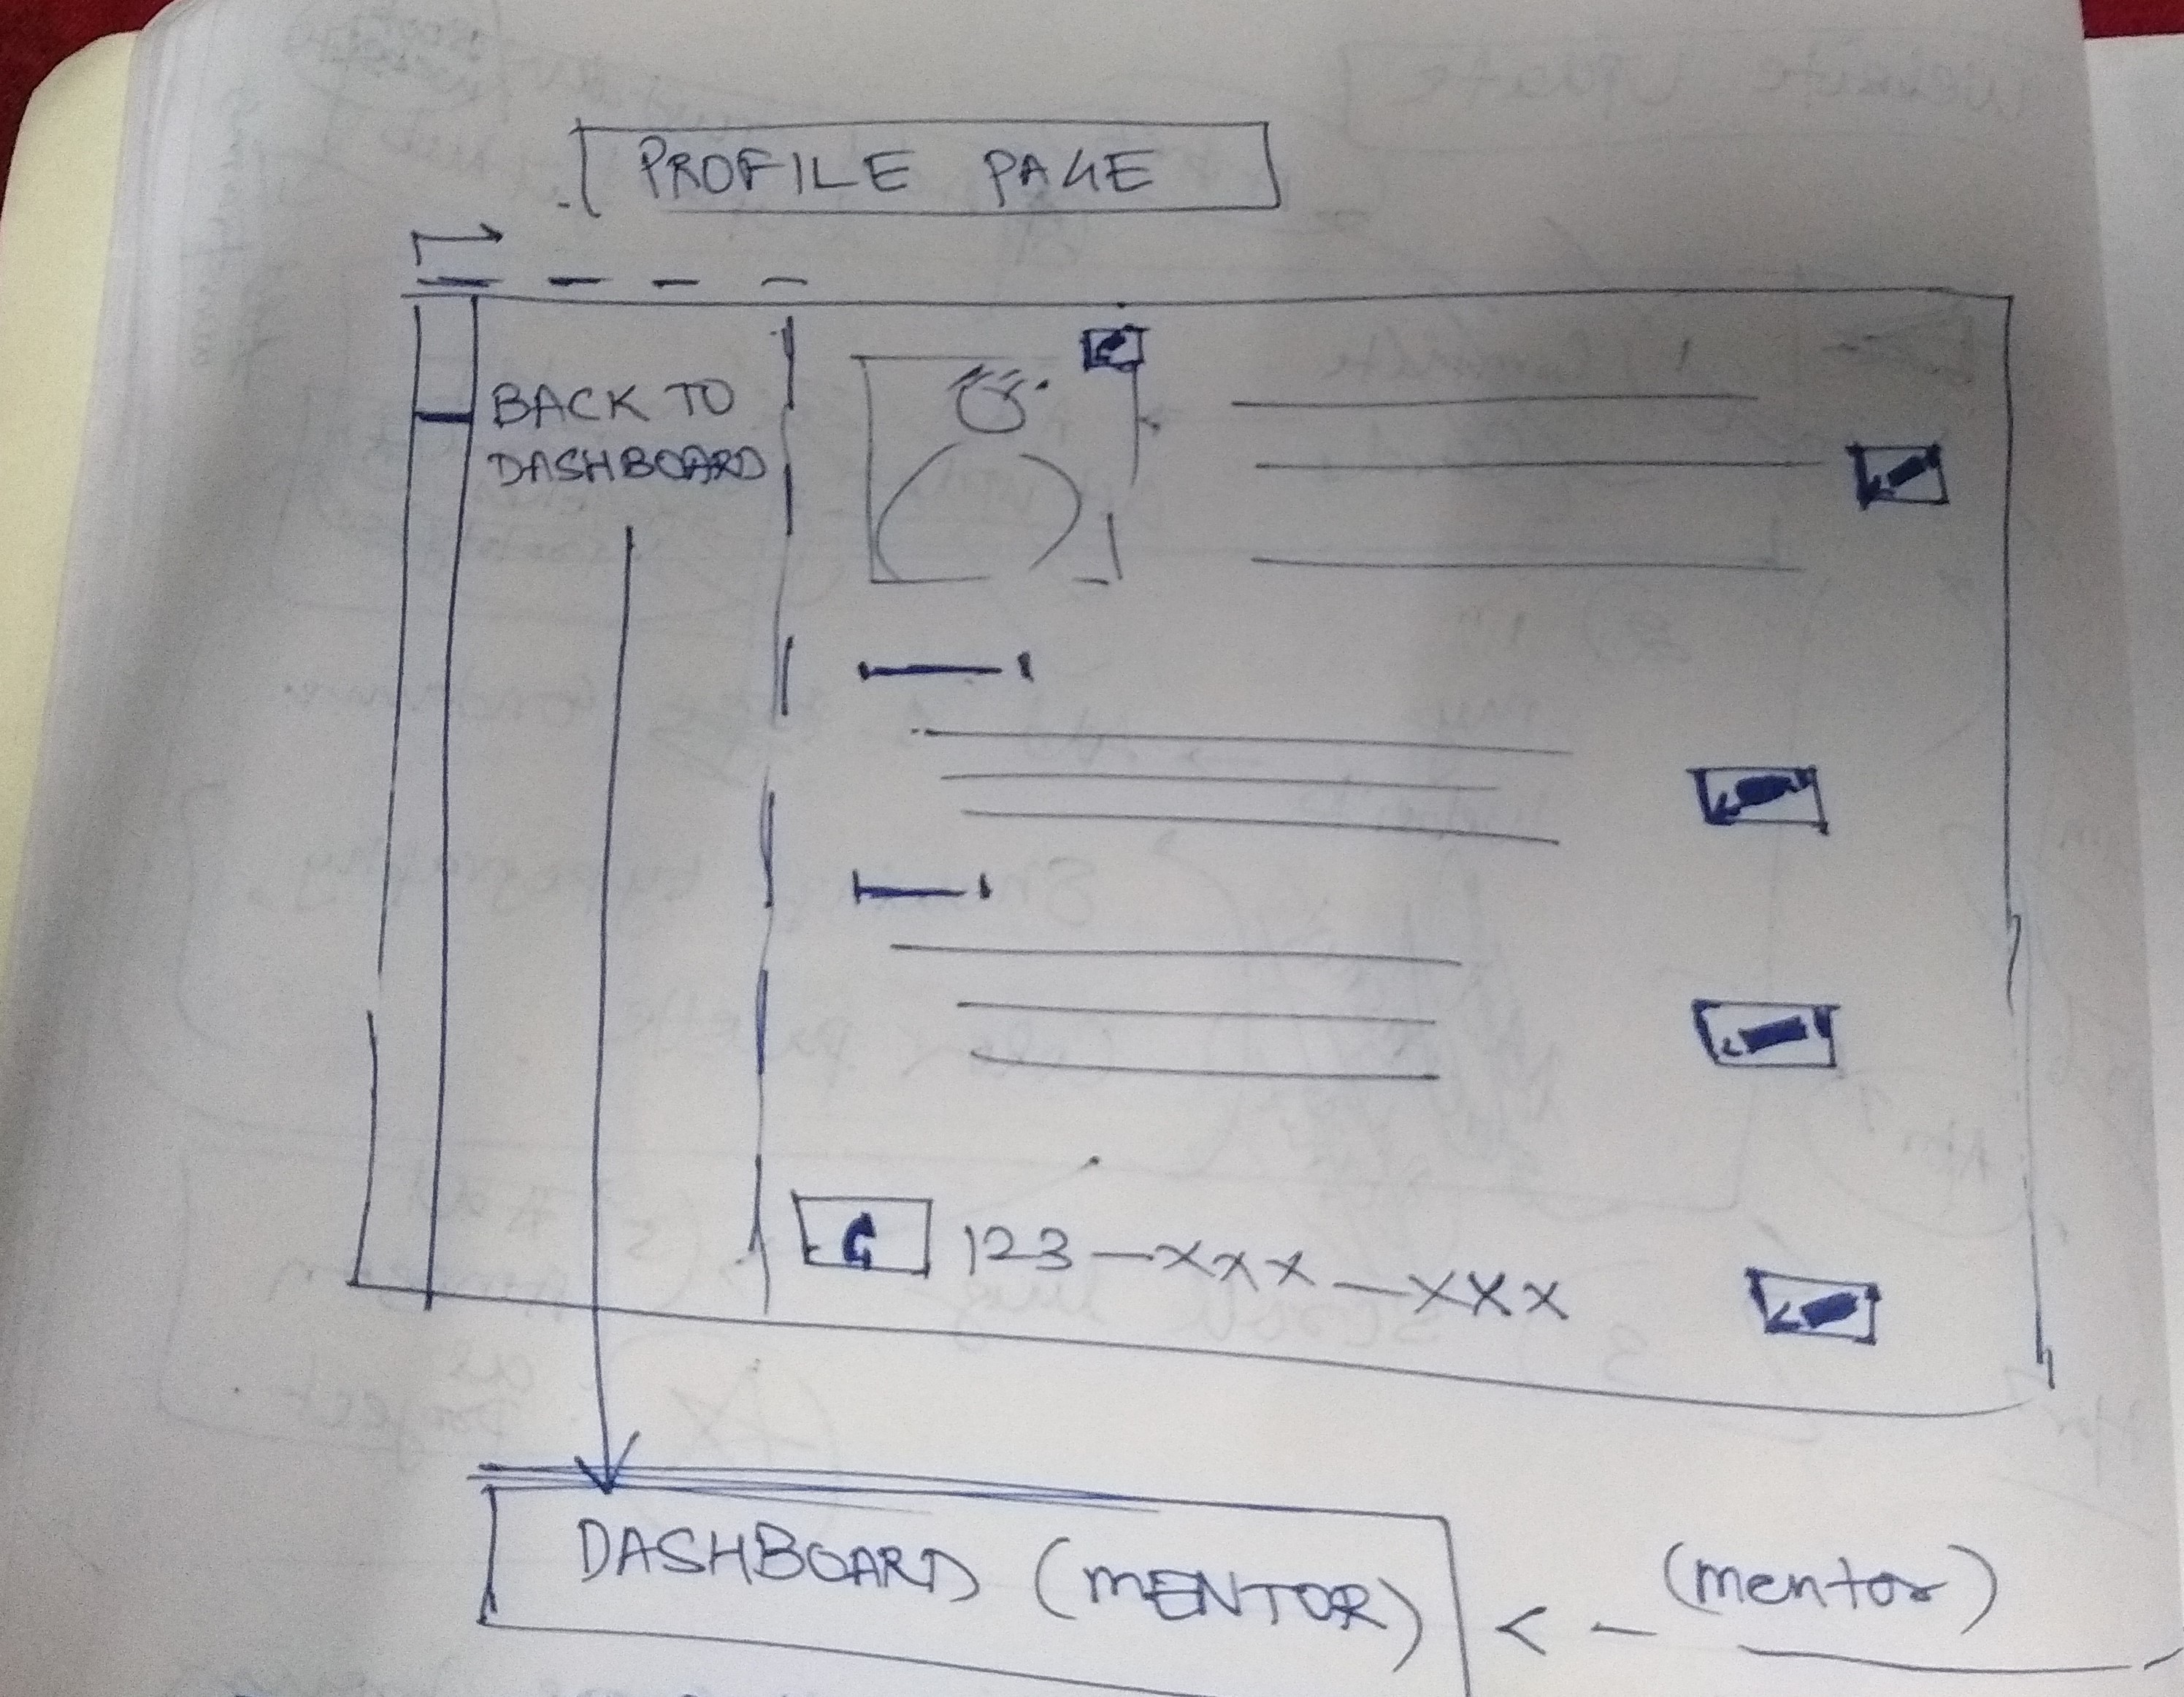 PROFILE PAGE
BACK TO
DASHBOARD
123-xxx-xxx
DASHBOARD (MENTOR)
(mentor)